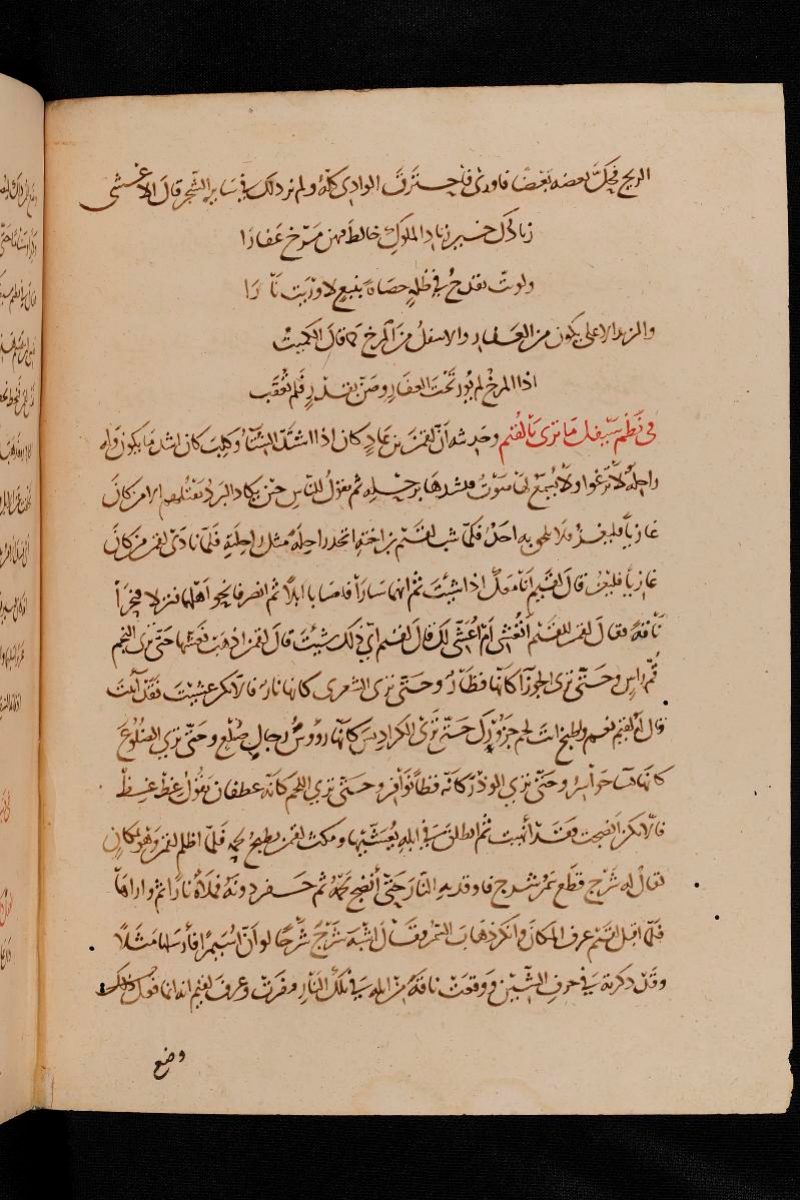 الريح فحكّ بعضه بعضا فاورى فاحترق الوادي كله ولم نر ذلك في ساير الشجر قال الاعشى
زنادك خير زناد الملوك خالط فيهن مرخ عفارا
ولو بت تقدح في ظلمة حصاة بنبع لاوريت نارا
والزند الاعلى يكون من العفار والاسفل من المرخ كما قال الكميت
اذا المرخ لم يور تحت العفار وضن بقدر فلم تعقب
في نظم سيفك ما ترى يا لقيم وحديثه ان لقمن بن عاد كان اذا اشتد الشتا وكلب كان اشد ما يكون وله
راحلة لا ترغوا ولا يسمع لها صوت فيشدها برحله ثم يقول للناس حين يكاد البرد يقتلهم الا من كان
غازيا فليغز فلا يلحق به احد فلما شب لقيم بن اخته اتخذ راحلة مثل راحلته فلما نادى لقمن من كان
غازيا فليغز قال لقيم انا معك اذا شئت ثم انهما سارا فاصابا ابلا ثم انصرفا نحو اهلهما فنزلا فنحرا
ناقة فقال لقمن للقيم اتعشي ام اعشي لك قال لقيم اي ذلك شئت قال لقمن اذهب فعشها حتى ترى النجم
قم راس وحتى ترى الجوزا كانها قطار وحتى ترى الشعرى كانها نار فالا تكن عشيت فقد آنيت
قال له لقيم نعم واطبخ انت لحم جزورك حتى ترى الكراديس كانها رؤوس رجال صلع وحتى ترى الضلوع
كانها نسا حواسر وحتى ترى الوذر كانه قطا نوافر وحتى ترى اللحم كانه غطفان يقول غط غط
فالا تكن انضجت فقد أنهيت ثم انطلق في ابله يعشيها ومكث لقمن يطبخ لحمه فلما اظلم لقمن وهو بمكان
يقال له شرج قطع سمر شرج فاوقد به النار حتى أنضج لحمه ثم حفر دونه فملاه نارا ثم واراها
فلما اقبل لقيم عرف المكان وانكر ذهاب السمر فقال اشبه شرج شرجا لو ان اسيمرا فأرسلها مثلا
وقد ذكرته في حرف الشين ووقعت ناقة من ابله في تلك النار فنفرت وعرف لقيم انه انما فعل ذلك
وضع